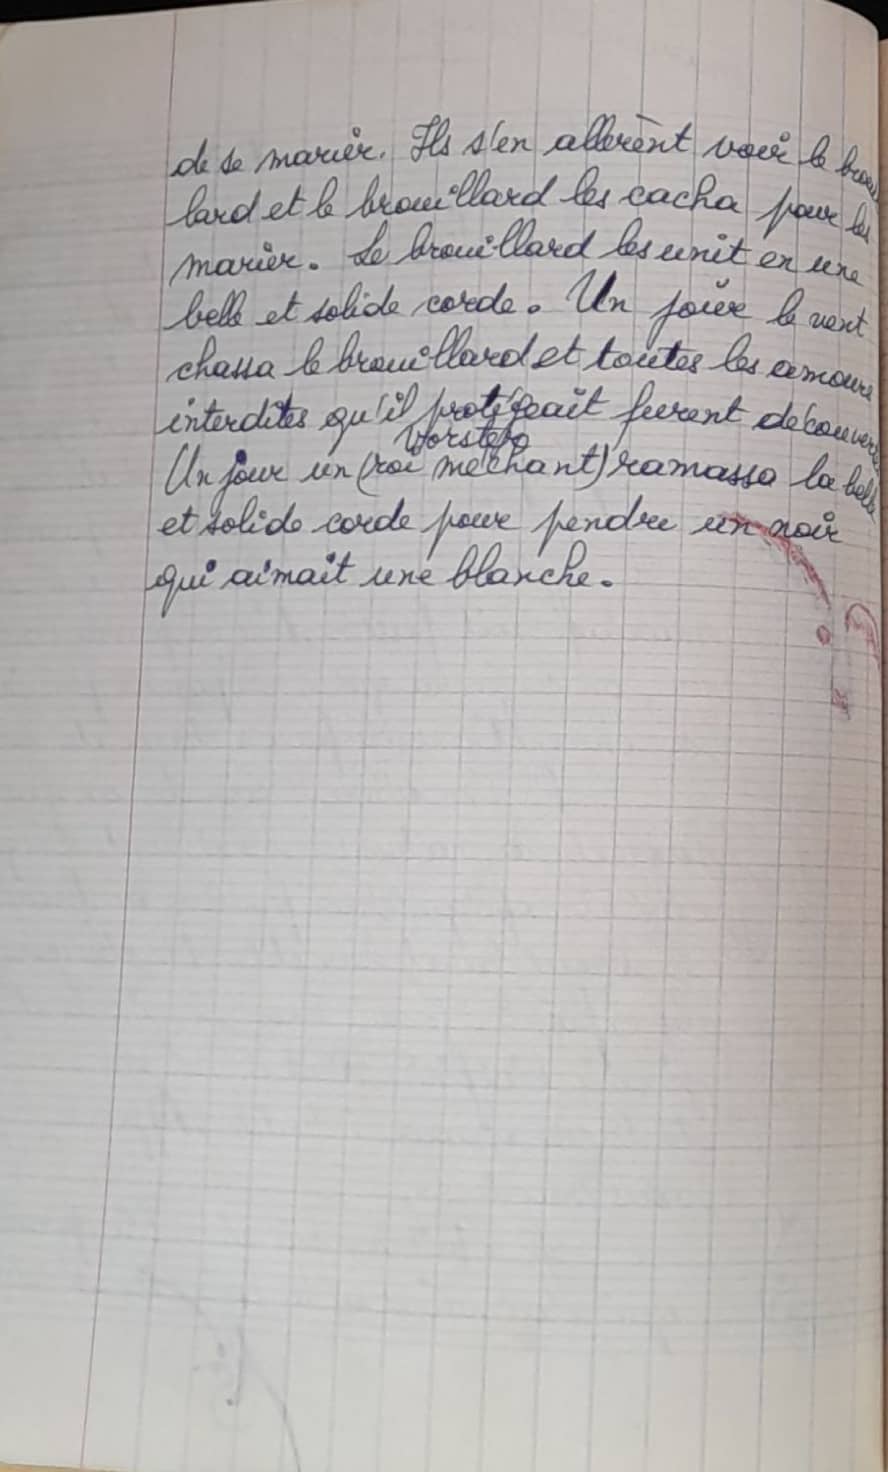 de se marier. Ils s'en allèrent voir le brouil
lard et le brouillard les cacha pour les
marier. Le brouillard les unit en une
belle et solide corde. Un jour le vent
chassa le brouillard et toutes les amours
interdites qu'il protégeait furent découvertes
Vorster
Un jour un (roi méchant) ramassa la belle
et solide corde pour pendre un noir
qui aimait une blanche.